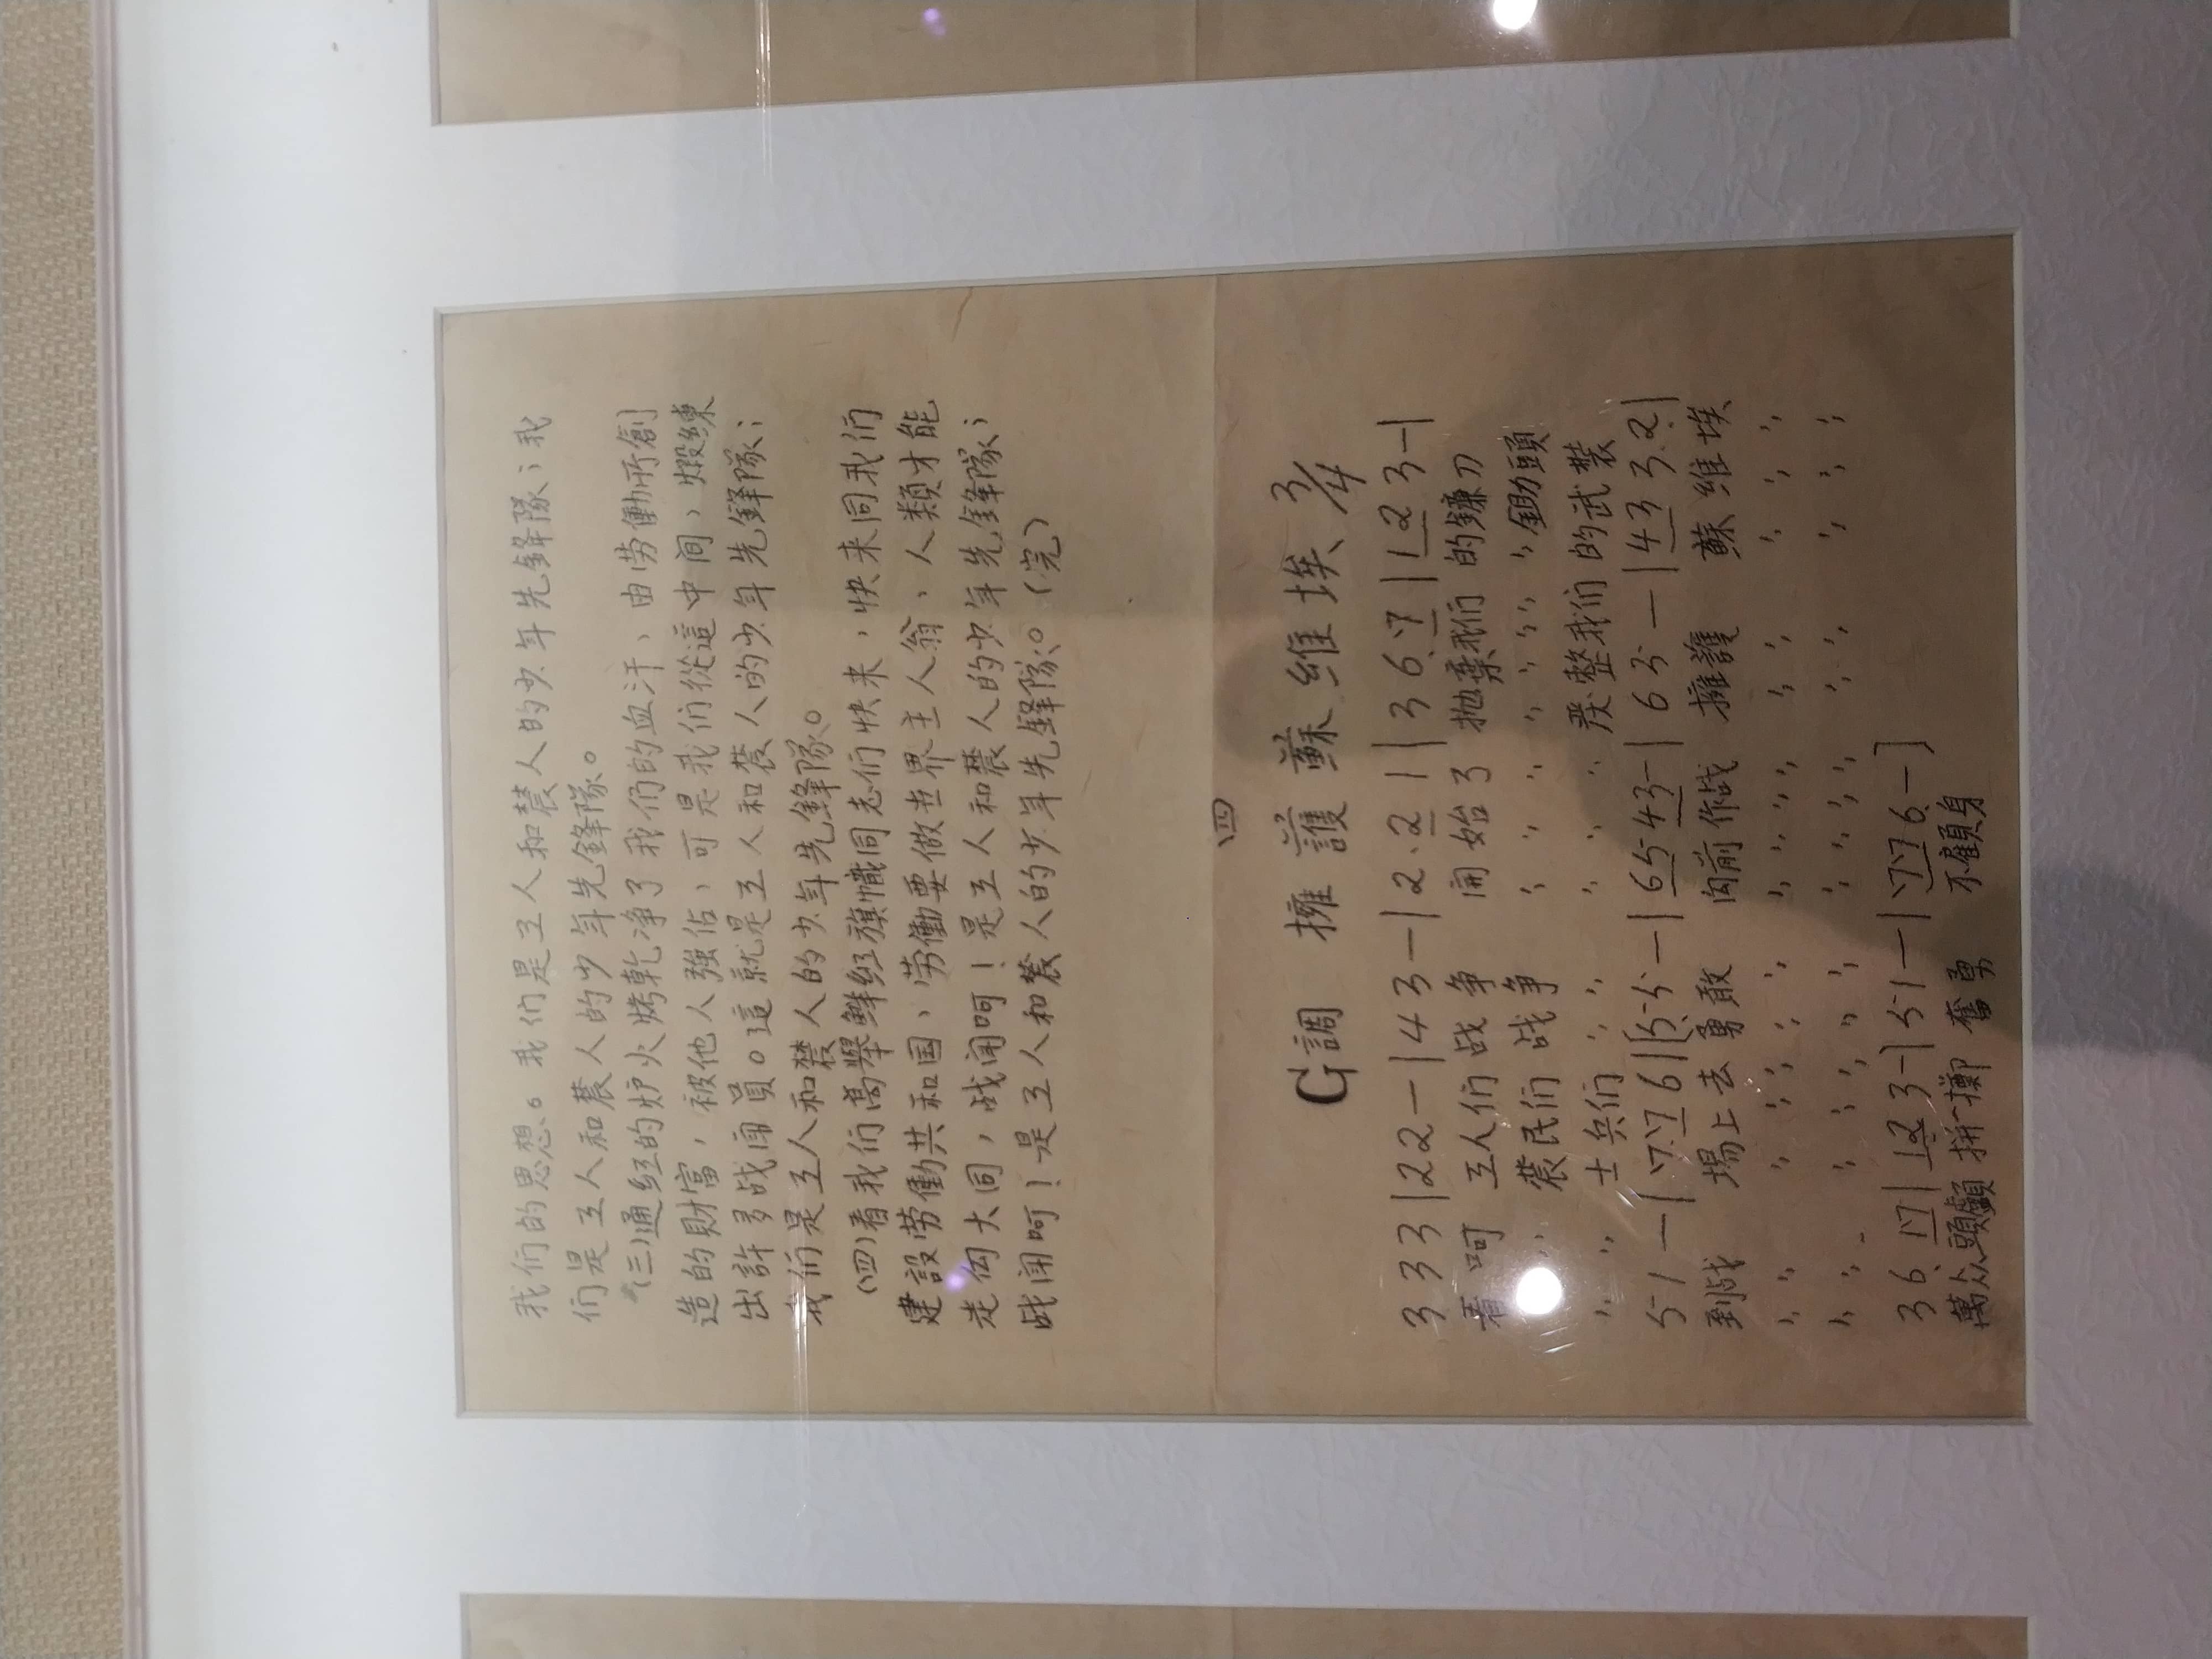 我们的思想。我们是工人和農人的少年先鋒隊；我
们是工人和農人的少年先鋒隊。
(三)通红的炉火烤乾净了我们的血汗，由劳働所創
造的財富，被他人強佔，可是我们從這中间，煅練
出許多战闹員。這就是工人和農人的少年先鋒隊；
我们是工人和農人的少年先鋒隊。
(四)看我们高舉鲜红旗幟同志们快来，快来同我们
建設劳働共和国，劳働要做世界主人翁，人類才能
走向大同，战闹呵！是工人和農人的少年先鋒隊；
战闹呵！是工人和農人的少年先鋒隊。(完)
四
G調 擁護蘇維埃 3/4
3 3 3|22—|43—|2.2 1|3 6.7|12 3—|
看呵 工人们 战争 開始了 抛棄我们 的鐮刀
〃 農民们 战争 〃 〃 〃 〃 〃 〃 〃 〃 鋤頭
〃 〃 士兵们 〃 〃 〃 〃 〃 严整我们 的武裝
51—|7.7 6|[55—|65 43—|63—|43 3.2|
到战 場上去 勇敢 向前作战 擁護 蘇維埃
〃 〃 〃 〃 〃 〃 〃 〃 〃 〃 〃 〃 〃 〃 〃 〃
〃 〃 〃 〃 〃 〃 〃 〃 〃 〃 〃 〃 〃 〃 〃 〃
36 17|12 3—|51—|77 6—]
萬众頭顱 拼一擲 奮勇 不顧身